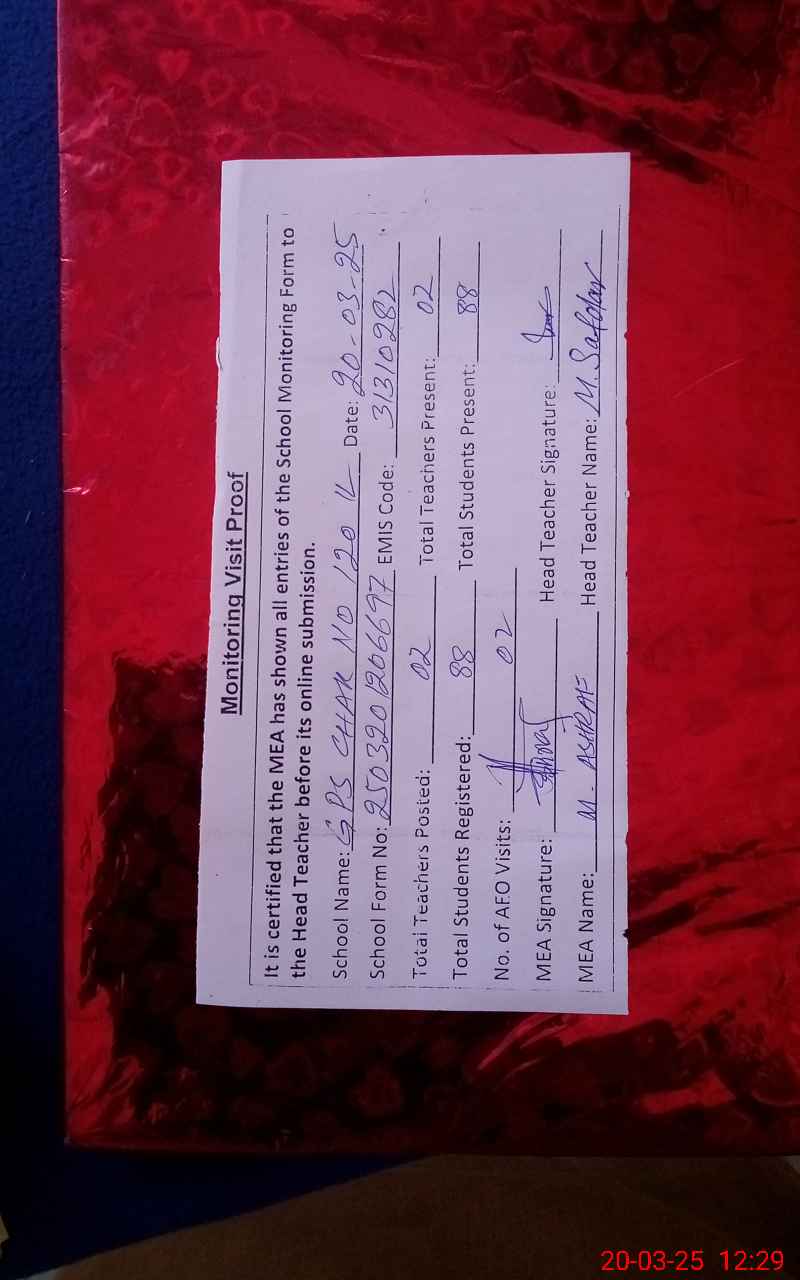 Monitoring Visit Proof
It is certified that the MEA has shown all entries of the School Monitoring Form to
the Head Teacher before its online submission.
School Name: GPS CHAK NO 120 1L Date: 20-03-25
School Form No: 2503201206697 EMIS Code: 31310282
Total Teachers Posted: 02 Total Teachers Present: 02
Total Students Registered: 88 Total Students Present: 88
No. of AEO Visits: 02
MEA Signature: Head Teacher Signature:
MEA Name: M. ASHRAF Head Teacher Name: M. Safdar
20-03-25 12:29